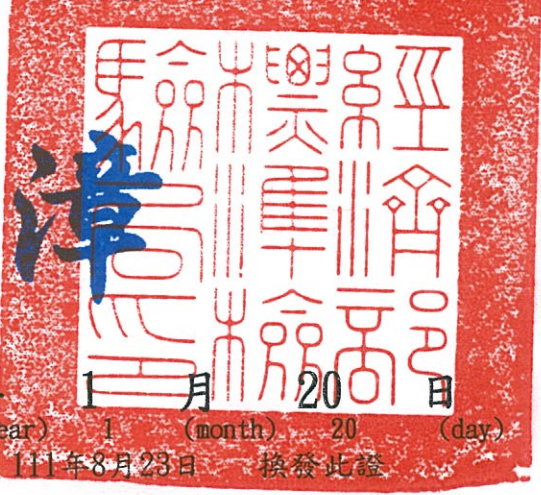 經濟部
標準檢
驗局印
漳
1 月 20 日
ear) 1 (month) 20 (day)
111年8月23日 換發此證